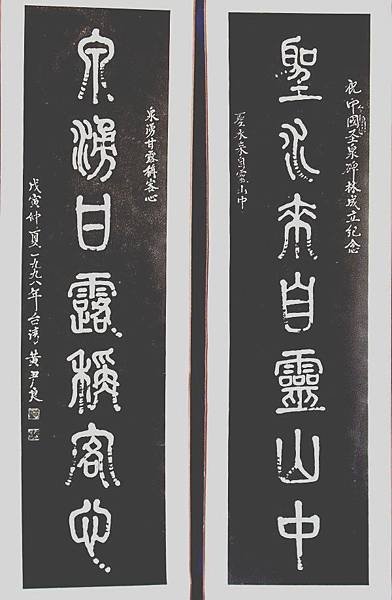 祝中國圣泉碑林成立纪念
聖水來自靈山中
圣水來自靈山中
泉湧甘露稱客心
泉湧甘露稱客心
戊寅仲夏一九九八年台湾黄尹